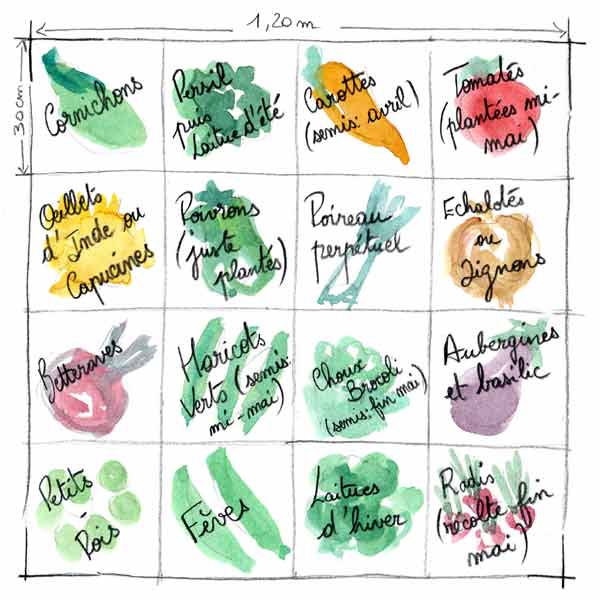 1,20m
30cm
Cornichons
Persil
puis
Laitue d'été
Carottes
(semis: avril)
Tomates
(plantées mi-
mai)
Œillets
d'Inde ou
Capucines
Poivrons
(juste
plantés)
Poireau
perpétuel
Echalotes
ou
Oignons
Betteraves
Haricots
Verts (semis:
mi-mai)
Choux
Brocoli
(semis: fin mai)
Aubergines
et basilic
Petits
-
Pois
Fèves
Laitues
d'hiver
Radis
(récolte fin
mai)